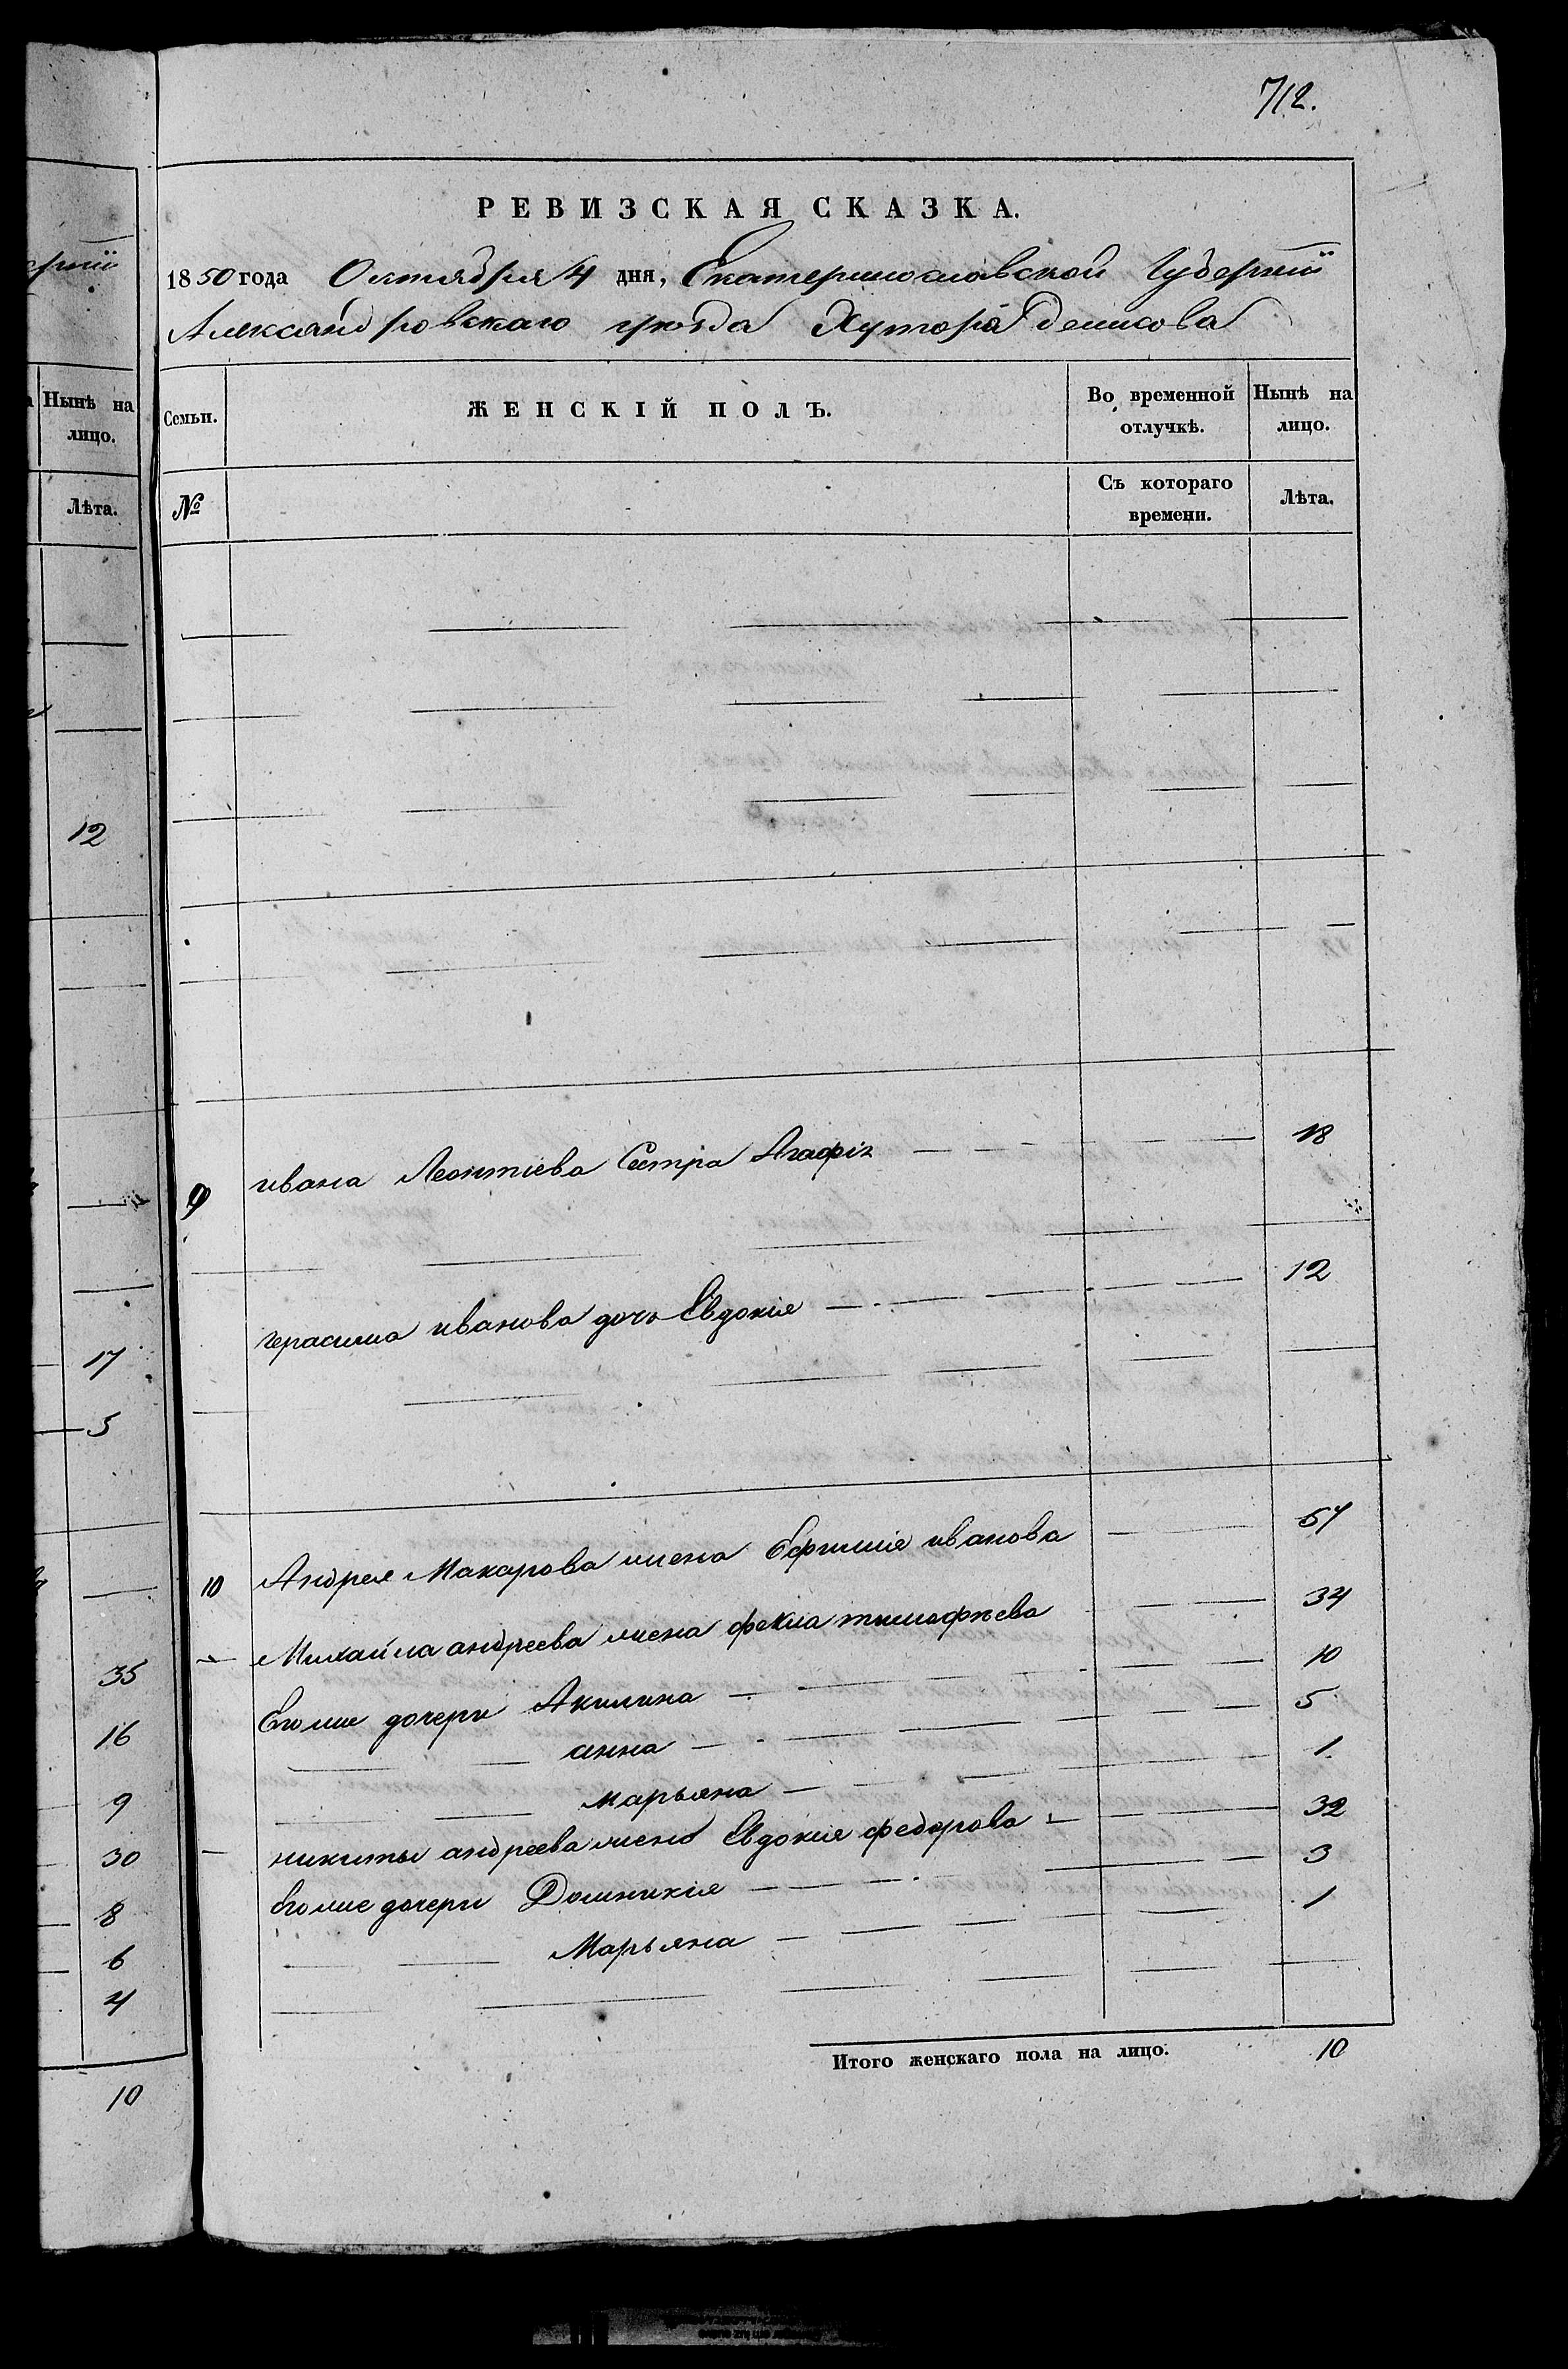 712.
РЕВИЗСКАЯ СКАЗКА.
1850 года Октября 4 дня, Екатеринославской Губерніи
Александровскаго уезда Хутора Денисова
Семьи. ЖЕНСКІЙ ПОЛЪ. Во временной отлучкѣ. Нынѣ на лицо.
№ Съ котораго времени. Лѣта.
9 ивана Леонтіева Сестра Агафія 18
герасима иванова дочь Евдокія 12
10 Андрея Макарова жена Ефимія иванова 57
Михайла андреева жена фекла тимофѣева 34
Егоже дочери Акилина 10
анна 5
марьяна 1
никиты андреева жена Евдокия федорова 32
Егоже дочери Домникія 3
Марьяна 1
Итого женскаго пола на лицо. 10
Нынѣ на лицо.
Лѣта.
12
17
5
35
16
9
30
8
6
4
10